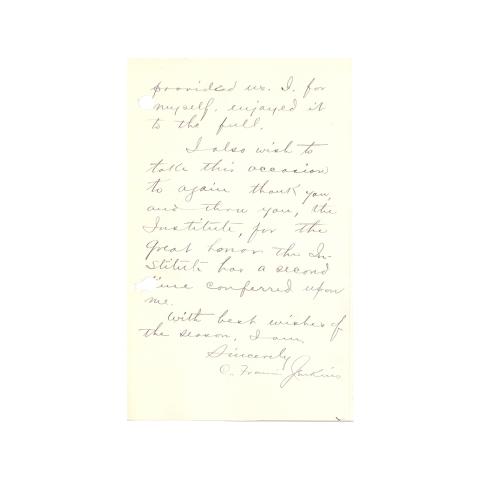 provided us. I, for
myself, enjoyed it
to the full.
I also wish to
take this occasion
to again thank you,
and thru you, the
Institute, for the
great honor the In-
stitute has a second
time conferred upon
me.
With best wishes of
the season, I am,
Sincerely
C. Francis Jenkins